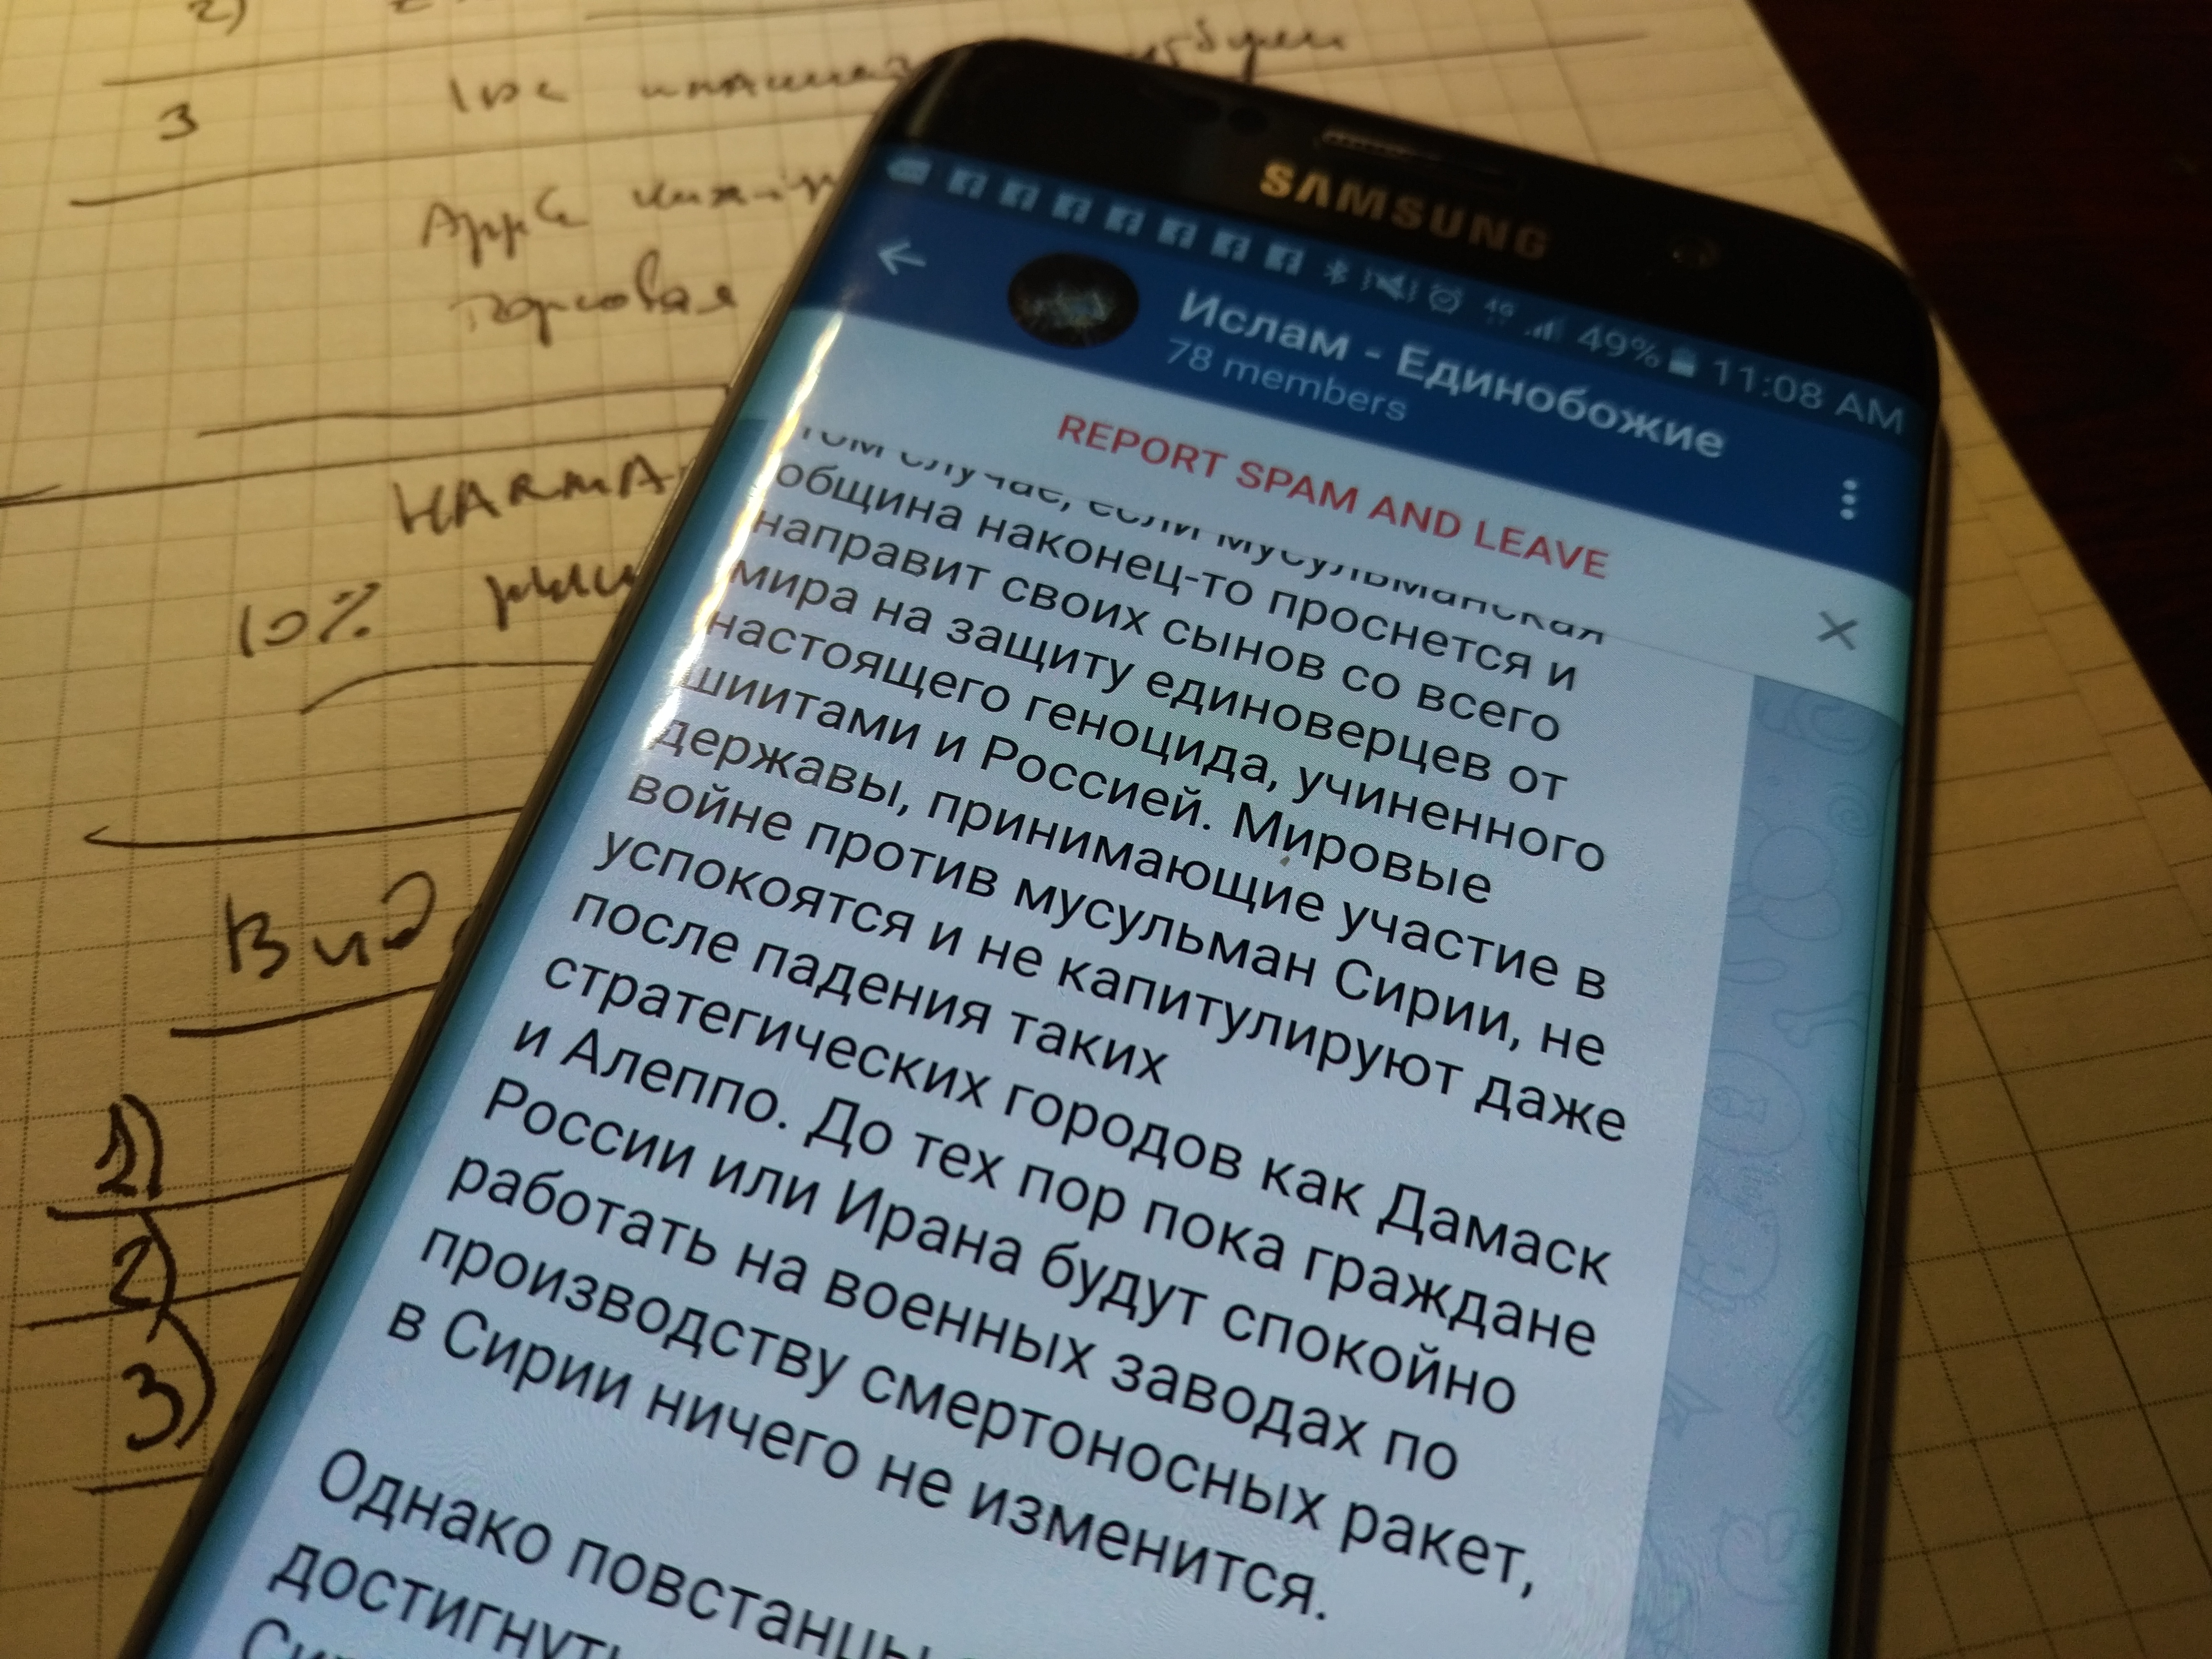 2)
3
Apple
HARMA
10%
Вид
1)
2)
3)
SAMSUNG
4G 49% 11:08 AM
Ислам - Единобожие
78 members
REPORT SPAM AND LEAVE
том случае, если мусульманская
община наконец-то проснется и
направит своих сынов со всего
мира на защиту единоверцев от
настоящего геноцида, учиненного
шиитами и Россией. Мировые
державы, принимающие участие в
войне против мусульман Сирии, не
успокоятся и не капитулируют даже
после падения таких
стратегических городов как Дамаск
и Алеппо. До тех пор пока граждане
России или Ирана будут спокойно
работать на военных заводах по
производству смертоносных ракет,
в Сирии ничего не изменится.
Однако повстанцы
достигнуть